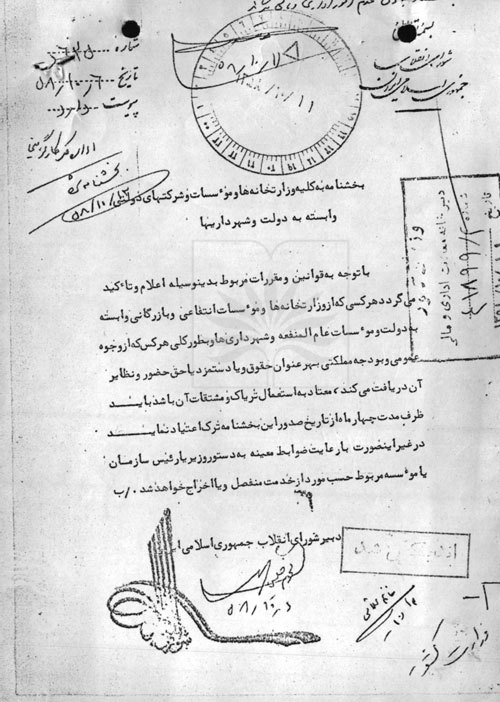 شماره
تاریخ ۵۸/۱۰/۶
پیوست
شورای انقلاب
جمهوری اسلامی ایران
۵۸/۱۰/۱۱
بخشنامه
۵۸/۱۰/۱۳
بخشنامه به کلیه وزارتخانه‌ها و مؤسسات و شرکتهای دولتی
وابسته به دولت و شهرداریها
با توجه به قوانین و مقررات مربوط بدینوسیله اعلام و تأکید
می‌گردد هر کسی که از وزارتخانه‌ها و مؤسسات انتفاعی و بازرگانی وابسته
به دولت و مؤسسات عام‌المنفعه و شهرداری‌ها و بطور کلی هر کس که از وجوه
عمومی و بودجه مملکتی بهر عنوان حقوق و یا دستمزد یا حق حضور و نظایر
آن دریافت می‌کند، معتاد به استعمال تریاک و مشتقات آن باشد باید
ظرف مدت چهار ماه از تاریخ صدور این بخشنامه ترک اعتیاد نماید
در غیر اینصورت با رعایت ضوابط معینه به دستور وزیر یا رئیس سازمان
یا مؤسسه مربوط حسب مورد از خدمت منفصل و یا اخراج خواهد شد ۰/ب
دبیر شورای انقلاب جمهوری اسلامی
دبیرخانه معاونت اداری و مالی
شماره ۱۸۹۹/۲
تاریخ